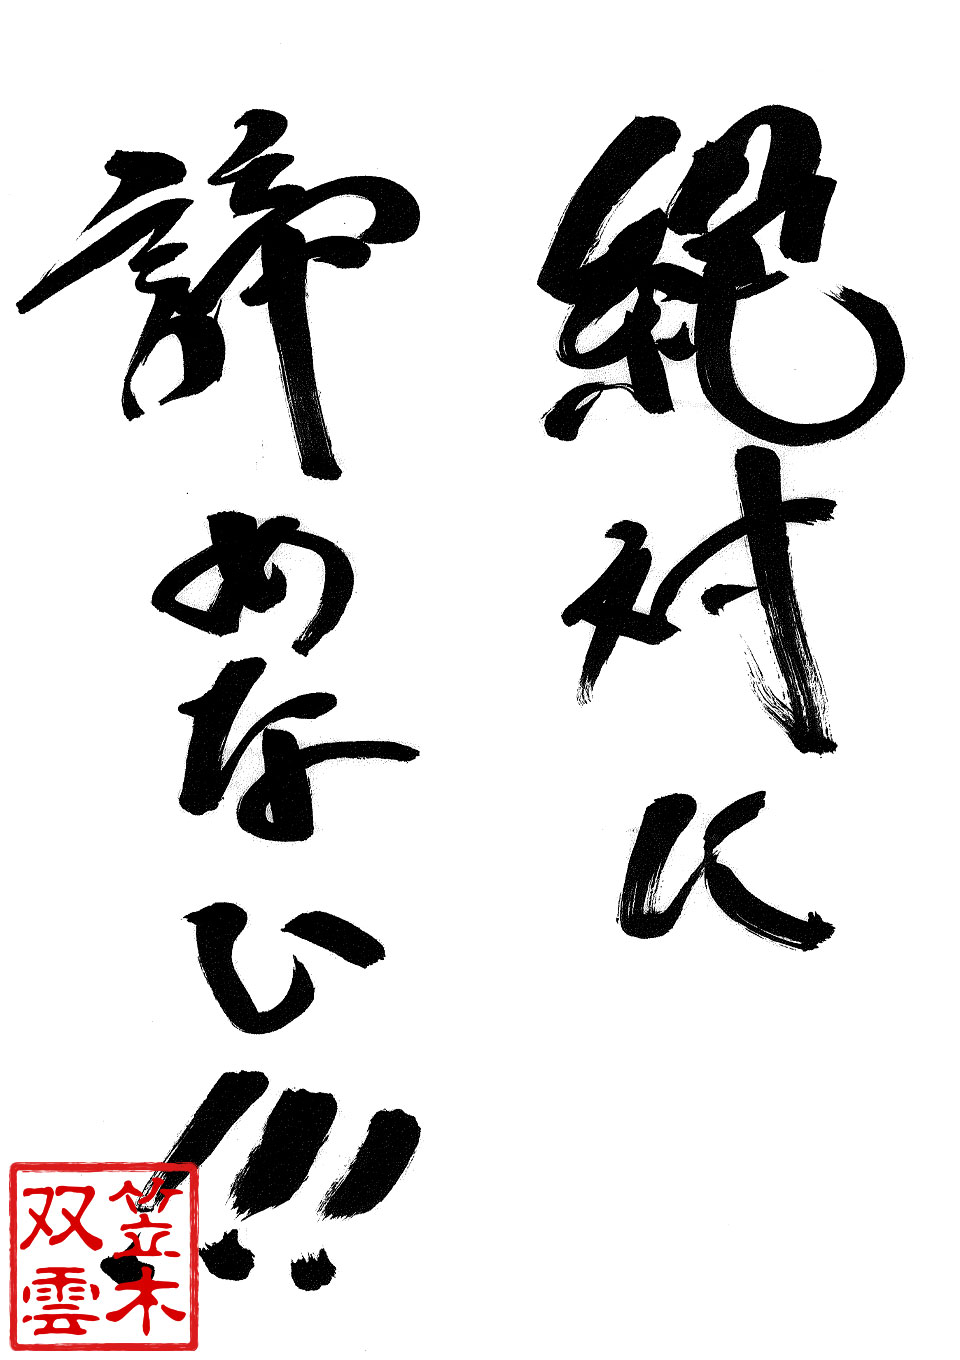 絶対に
諦めない!!!
笠木
双雲